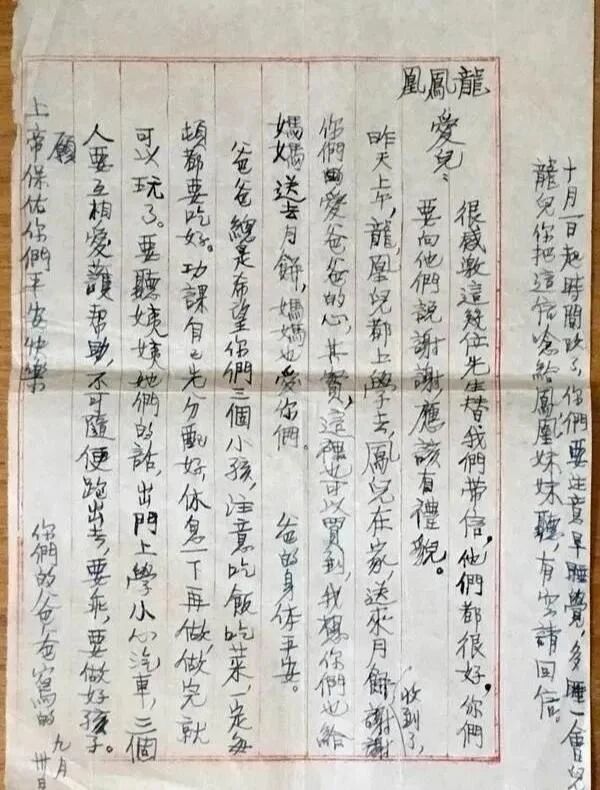 龍鳳凰
愛兒：
很感激這幾位先生替我們帶信，他們都很好，你們
要向他們說謝謝，應該有禮貌。
昨天上午，龍，凰兒都上學去，鳳兒在家，送來月餅收到了，謝謝
你們的愛爸爸的心，其實，這裡也可以買到，我想你們也給
媽媽送去月餅，媽媽也愛你們。　爸的身体平安。
爸爸總是希望你們三個小孩，注意吃飯吃菜，一定每
頓都要吃好。功課自己先分配好，休息一下再做，做完就
可以玩了。要聽姨姨她們的話，出門上學小心汽車，三個
人要互相愛護幫助，不可隨便跑出去，要乖，要做好孩子。
願
上帝保佑你們平安快樂
你們的爸爸寫的
九月
卅日
十月一日起時間改了，你們要注意早睡覺，多睡一會兒
龍兒你把這信唸給鳳凰妹妹聽，有空請回信。